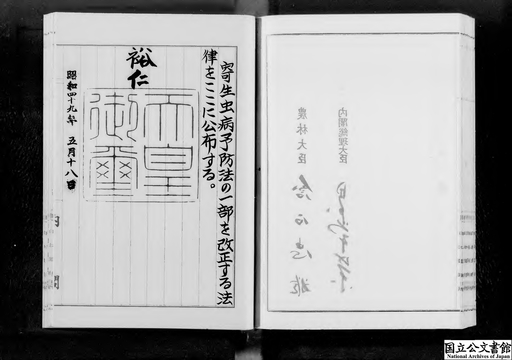 寄生虫病予防法の一部を改正する法
律をここに公布する。
裕仁
天皇
御璽
昭和四十九年 五月十八日
内閣
内閣総理大臣
農林大臣
国立公文書館
National Archives of Japan